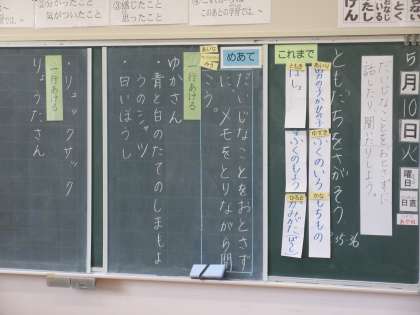 5月10日火曜日
日直
ともだちをさがそう
だいじなことをおとさずに、
話したり、聞いたりしよう。
これまで
男の子か女の子
ぼうし
ふくのいろ
ふくのもよう
もちもの
かみがた
めあて
だいじなことをおとさず
に、メモをとりながら聞
こう。
一行あける
ゆかさん
・青と白のたてのしまもよ
うのシャツ
・白いぼうし
一行あける
りょうたさん
・リュックサック
②分かったこと
気がついたこと
③感じたこと
思ったこと
このあとの学習では、～